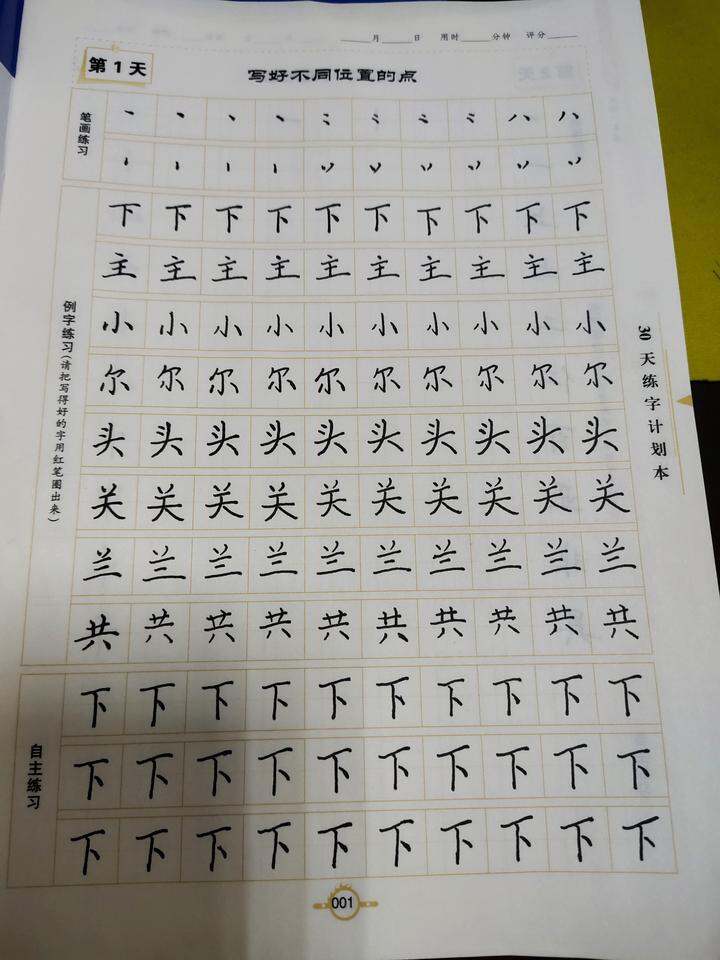 ____月____日 用时____分钟 评分____
第1天
写好不同位置的点
笔画练习
例字练习(请把写得好的字用红笔圈出来)
下下下下下下下下下下
主主主主主主主主主主
小小小小小小小小小小
尔尔尔尔尔尔尔尔尔尔
头头头头头头头头头头
关关关关关关关关关关
兰兰兰兰兰兰兰兰兰兰
共共共共共共共共共共
自主练习
下下下下下下下下下下
下下下下下下下下下下
下下下下下下下下下下
30天练字计划本
001